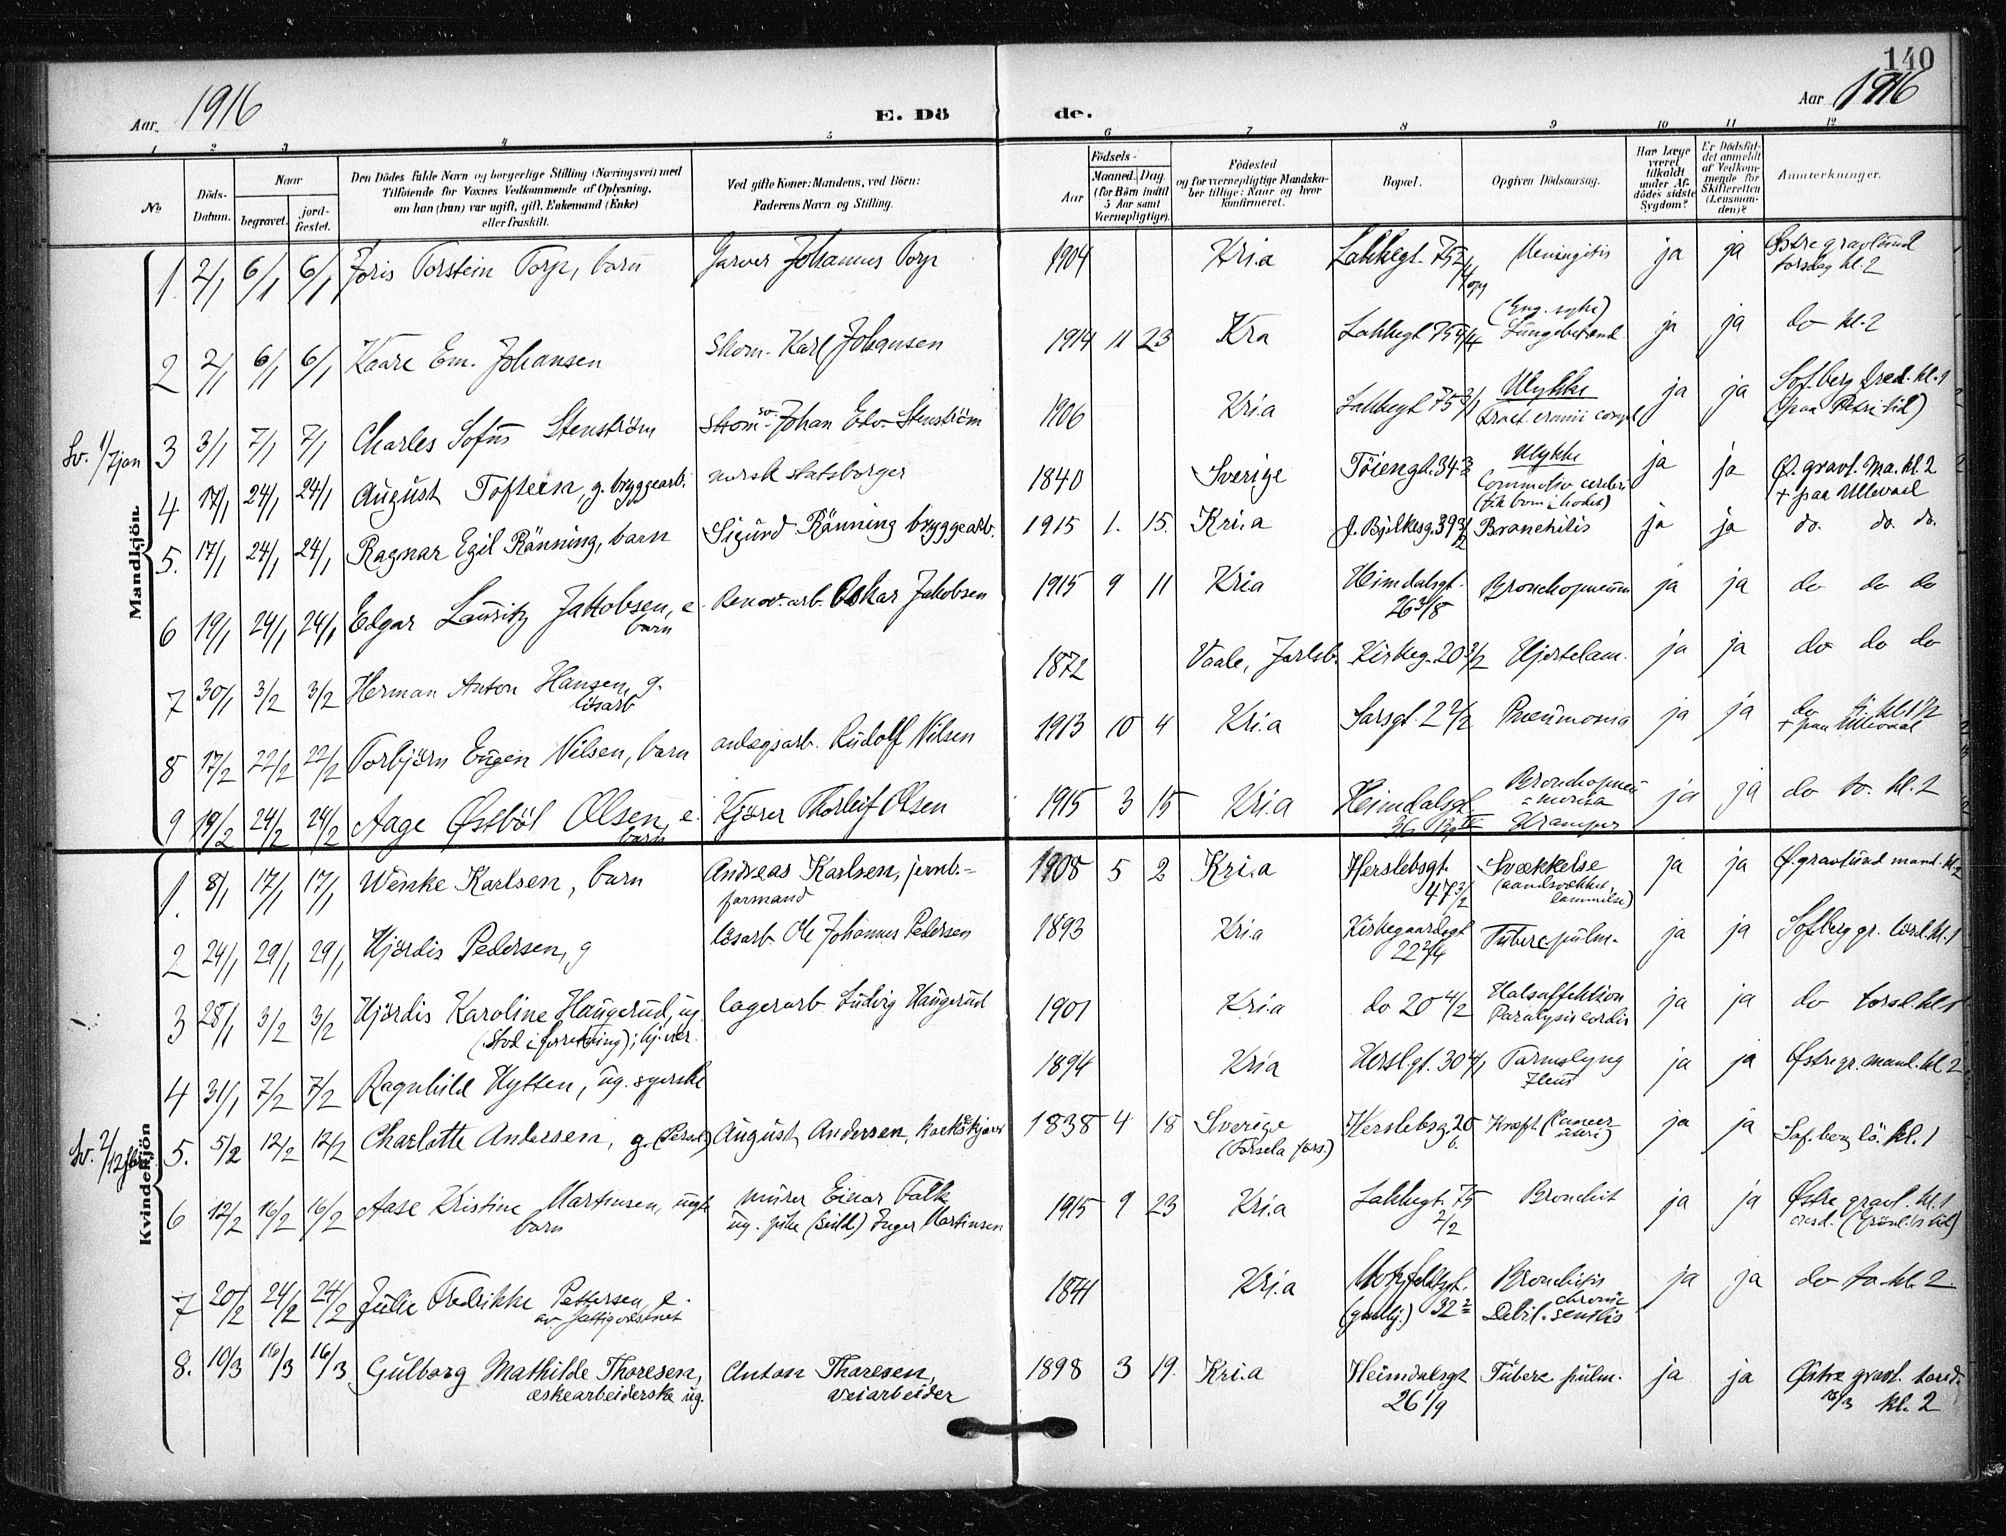 140
Aar. 1916 E. Dö de. Aar 1916
1 2 3 4 5 6 7 8 9 10 11 12
No. Döds-Datum. Naar begravet. jord-fæstet. Den Dödes fulde Navn og borgerlige Stilling (Næringsvei) med Tilföiende for Voxnes Vedkommende af Oplysning, om han (hun) var ugift, gift, Enkemand (Enke) eller fraskilt. Ved gifte Koner: Mandens, ved Börn: Faderens Navn og Stilling. Födsels- Aar Maaned. Dag. (for Börn indtil 5 Aar samt Værnepligtige). Födested og for værnepligtige Mandskaber tillige: Naar og hvor konfirmeret. Bopæl. Opgiven Dödsaarsag. Har Læge været tilkaldt under Afdödes sidste Sygdom? Er Dödsfaldet anmeldt af Vedkommende for Skifteretten (Lensmanden)? Anmerkninger.
Mandkjön.
1. 2/1 6/1 6/1 Joris Torstein Torp, barn Garver Johannes Torp 1904 Kri.a Lakkegt. 75 2/4 opg Meningitis ja ja Østre gravlund torsdag kl. 2
2 2/1 6/1 6/1 Kaare Em. Johansen Skom. Karl Johansen 1914 11 23 Kra Lakkegt 75 4/4 (Eng. syke) Lungebetænd. ja ja do kl. 2
Sv. 1/7 jan 3 3/1 7/1 7/1 Charles Sofus Stenström Skom sv. Johan Edv. Stenström 1906 Kri.a Lakkegt 75 3/1 Ulykke Fract. cranii compl ja ja Sof.berg fred. kl. 1 (paa Petri tid)
4 17/1 24/1 24/1 August Tofteen, g. bryggearb. norsk statsborger 1840 Sverige Töiengt. 34 3/2 Ulykke Commotio cerebri (fik bom i hodet) ja ja Ø. gravl. Ma. kl. 2 + paa Ullevaal
5. 17/1 24/1 24/1 Ragnar Egil Rönning, barn Sigurd Rönning bryggearb. 1915 1. 15. Kri.a J. Bjelkesg. 39 3/2 Bronchitis ja ja do. do. do.
6 19/1 24/1 24/1 Edgar Lauritz Jakobsen, e. barn Renov. arb. Oskar Jakobsen 1915 9 11 Kria Heimdalsgt. 26 3/8 Bronchopneum ja ja do do do
7 30/1 3/2 3/2 Herman Anton Hansen, g. lösarb 1872 Vaale, Jarlsb. Kirkeg. 20 3/2 Hjertelam. ja ja do do do
8 17/2 22/2 22/2 Torbjörn Eugen Nilsen, barn anlægsarb. Rudolf Nilsen 1913 10 4 Kri.a Sarsgt. 2 2/2 Pneumonia ja ja do ti. kl. 1 1/2 + paa Ullevaal
9 19/2 24/2 24/2 Aage Østböl Olsen, e. barn Kjörer Thorleif Olsen 1915 3 15 Kri.a Heimdalsgt. 36 Bronchopneumonia Kramper ja ja do to. kl. 2
Kvindekjön
1. 8/1 17/1 17/1 Wenke Karlsen, barn Andreas Karlsen, jernb.=formand 1908 5 2 Kri.a Herslebsgt. 47 3/2 Svækkelse (aandsvækket, lammelse) ja ja Ø.gravlund mand. kl. 2
2 24/1 29/1 29/1 Hjördis Pedersen, g lösarb Ole Johannes Pedersen 1893 Kri.a Kirkegaardsgt 22 2/4 Tuberc. pulm. ja ja Sof.berg gr. lörd. kl. 1
3 28/1 3/2 3/2 Hjördis Karoline Haugerud, ug. (Stod i forretning); hj. vær. lagerarb Ludvig Haugerud 1901 Kri.a do 20 4/2 Halsaffektion Paralysis cordis ja ja do torsd. kl. 1
4 31/1 7/2 7/2 Ragnhild Hytten, ug. syerske 1894 Kria Hersl.gt. 30 4/1 Tarmslyng Ileus ja ja Østre gr. mand. kl. 2
Sv. 2/12 febr. 5. 5/2 12/2 12/2 Charlotte Andersen, g. August Andersen, 1838 4 18 Sverige (Torsela fors.) Herslebsg 20 6. Kræft (Cancer uteri) ja ja Sof. berg lö. kl. 1
6 12/2 16/2 16/2 Aase Kristine Martinsen, uegte barn murer Einar Falk ug. pike Inger Martinsen 1915 9 23 Kri.a Lakkegt. 75 2/2 Bronchit ja ja Østre gravl. kl. 1 onsd. (Grönl.s tid)
7 20/2 24/2 24/2 Julie Fredrikke Pettersen, e. av fattigvæsenet 1841 Kri.a Motzfeldtsgt. (gamlhj.) 32 2 Bronchitis chronic Debil. senilis ja ja do to. kl. 2
8. 10/3 16/3 16/3 Gulborg Mathilde Thoresen, eskearbeiderske ug. Anton Thoresen, veiarbeider 1898 3 19. Kri.a Heimdalsgt 26 1/9 Tuberc pulm. ja ja Østre gravl. torsd. 16/3 kl. 2